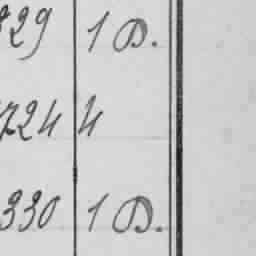 829 1 D.
1724 4
330 1 D.